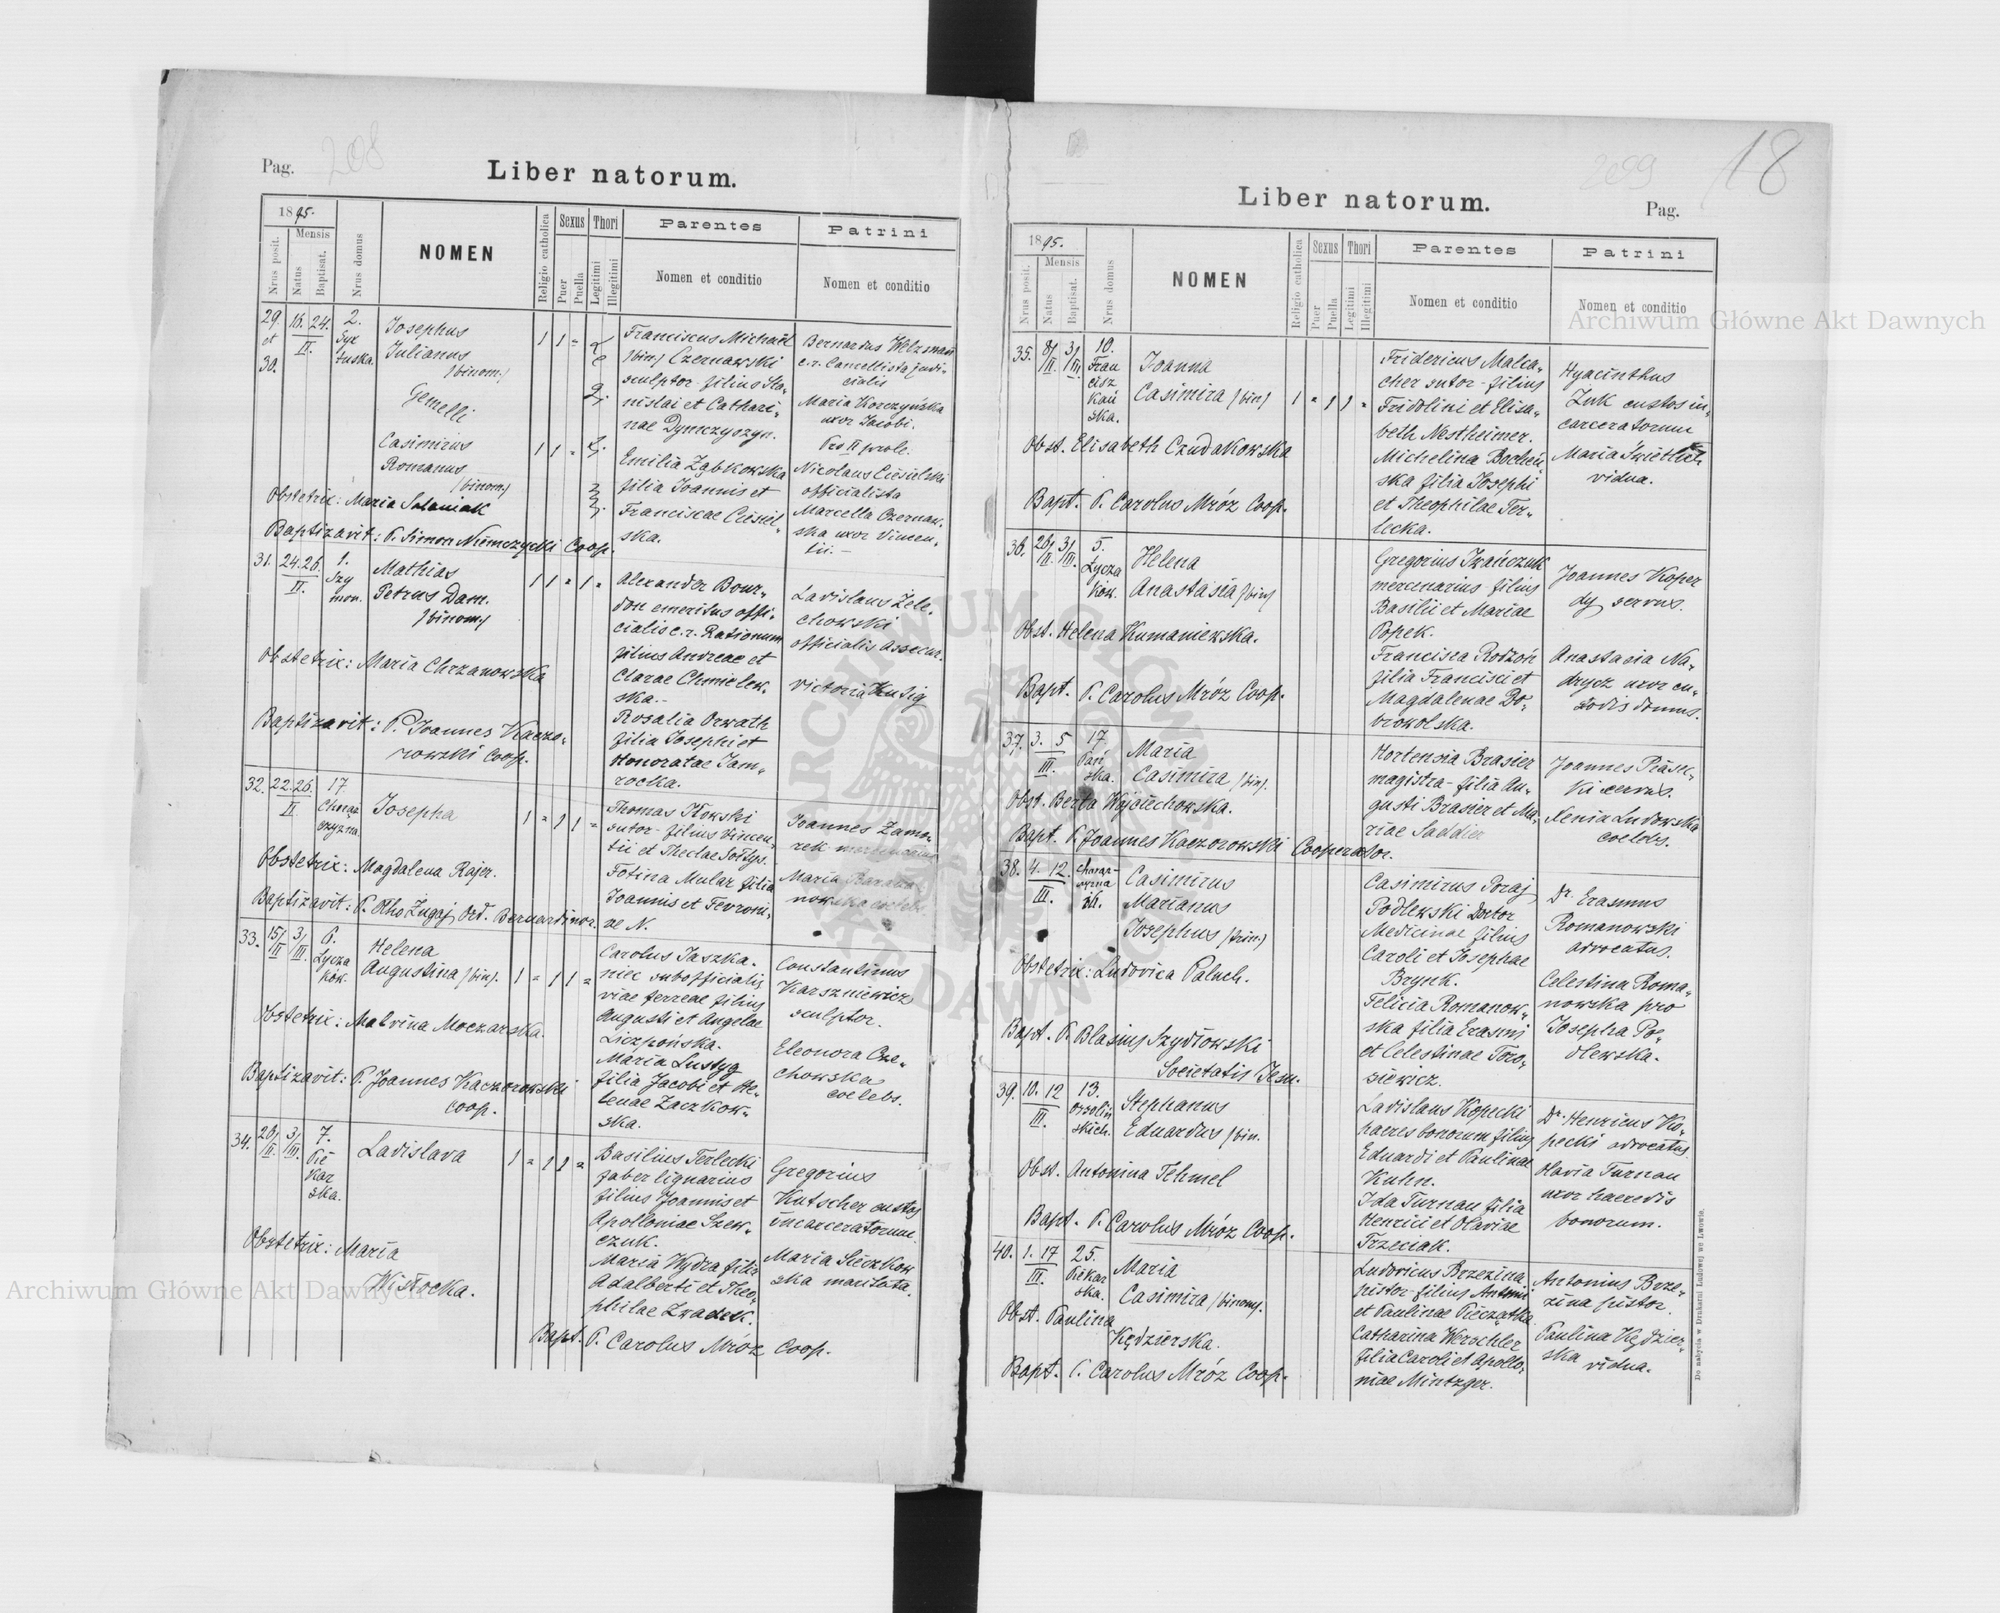 Pag. 208
Liber natorum.
1895.
Nrus posit.
Mensis
Natus
Baptisat.
Nrus domus
NOMEN
Religio catholica
Sexus
Puer
Puella
Thori
Legitimi
Illegitimi
Parentes
Nomen et conditio
Patrini
Nomen et conditio
29. et 30.
16. 24.
II.
2.
Syx
tuska.
Josephus
Julianus
/binom/
Gemelli
Casimirus
Romanus
/binom/
Franciscus Michaël
/bin/ Czernawski
sculptor filius Sta-
nislai et Cathari-
nae Dymczyszyn.
Emilia Ząbkowska
filia Joannis et
Franciscae Ciesiel-
ska.
Bernardus Welzmann
c.r. Cancellista judi-
cialis
Maria Korczyńska
uxor Jacobi.
Pro II prole:
Nicolaus Ciesielski
officialista
Marcella Czernaw-
ska uxor Vincen-
tii.
Obstetrix: Maria Sataniak
Baptizavit: P. Simon Niemczycki Coop.
31.
24. 26.
II.
1.
Szy
mon.
Mathias
Petrus Dam.
/binom/
Alexander Bour-
don emeritus offi-
cialis c.r. Rationum
filius Andreae et
Clarae Chmielew-
ska.
Rosalia Orwath
filia Josephi et
Honoratae Jam-
rocka.
Ladislaus Zele-
chowski
officialis assecur.
Victoria Kusig
Obstetrix: Maria Chrzanowska
Baptizavit: P. Joannes Kaczo-
rowski Coop.
32.
22. 26.
II.
17
Chorąż
czyzna.
Josepha
Thomas Kowski
sutor filius Vincen-
tii et Theclae Sołtys.
Fotina Mular filia
Joannis et Fevroni-
ae N.
Joannes Zamo-
rek mercenarius
Maria Barana-
nowska coelebs
Obstetrix: Magdalena Rajer.
Baptizavit: P. Otho Zugaj Ord. Bernardinor.
33.
15/II 3/III.
6.
Łycza
kow.
Helena
Augustina /bin/.
Carolus Jaszka-
niec subofficialis
viae ferreae filius
Augusti et Angelae
Liczpońska.
Maria Lustyg
filia Jacobi et He-
lenae Zaczkow-
ska.
Constantinus
Karszniewicz
sculptor.
Eleonora Cze-
chowska
coelebs.
Obstetrix: Malvina Moczarska.
Baptizavit: P. Joannes Kaczorowski
coop.
34.
26/II. 3/III.
7.
Pie
kar
ska.
Ladislava
Basilius Terlecki
faber lignarius
filius Joannis et
Apolloniae Szew-
czuk.
Maria Wydra filia
Adalberti et Theo-
philae Zwadek.
Gregorius
Kutscher custos
incarceratorum.
Maria Sieczkow
ska maritata.
Obstetrix: Maria
Wisłocka.
Bapt. P. Carolus Mróz Coop.
2099
18
Liber natorum.
Pag.
1895.
Nrus posit.
Mensis
Natus
Baptisat.
Nrus domus
NOMEN
Religio catholica
Sexus
Puer
Puella
Thori
Legitimi
Illegitimi
Parentes
Nomen et conditio
Patrini
Nomen et conditio
35.
8/II. 3/III.
10.
Fran
cisz
kań
ska.
Joanna
Casimira /bin/
Fridericus Malca-
cher sutor filius
Fridolini et Elisa-
beth Nestheimer.
Michelina Bocheń-
ska filia Josephi
et Theophilae Ter-
lecka.
Hyacinthus
Zuk custos in-
carceratorum
Maria
vidua.
Obst. Elisabeth Czudakowska
Bapt. P. Carolus Mróz Coop.
36.
26/II. 3/III.
5.
Łycza
kow.
Helena
Anastasia /bin/
Gregorius Iwańczuk
mercenarius filius
Basilii et Mariae
Popek.
Francisca Rodzoń
filia Francisci et
Magdalenae Do-
browolska.
Joannes Koper
dy servus.
Anastasia Na-
drycz uxor cu-
stodis domus.
Obst. Helena Kumaniewska.
Bapt. P. Carolus Mróz Coop.
37.
3. 5
III.
17
Pań
ska.
Maria
Casimira /bin/.
Hortensia Brasier
magistra filia Au-
gusti Brasier et Ma-
riae Saddier
Joannes Piasec-
ki servus.
Xenia Ludowska
coelebs.
Obst. Berta Wojciechowska.
Bapt. P. Joannes Kaczorowski Cooperator.
38.
4. 12.
III.
Chorąż-
czyzna
Casimirus
Marianus
Josephus /trin./
Casimirus Poraj
Podlewski Doctor
Medicinae filius
Caroli et Josephae
Brynk.
Felicia Romanow-
ska filia Erasmi
et Celestinae Toro-
siewicz.
Dr. Erasmus
Romanowski
advocatus.
Celestina Roma-
nowska pro
Josepha Po-
dlewska.
Obstetrix: Ludovica Paluch.
Bapt. P. Blasius Szydłowski
Societatis Jesu.
39.
10. 12
III.
13.
Ossoliń
skich.
Stephanus
Eduardus /bin.
Ladislaus Kopecki
haeres bonorum filius
Eduardi et Paulinae
Kuhn.
Ida Turnau filia
Henrici et Olaviae
Trzeciak.
Dr. Henricus Ko-
pecki advocatus
Olavia Turnau
uxor haeredis
bonorum.
Obst. Antonina Tehmel
Bapt. P. Carolus Mróz Coop.
40.
1. 17
III.
25.
Piekar
ska.
Maria
Casimira /binom/.
Ludovicus Brzezina
pistor filius Antonii
et Paulinae Pieczątka
Catharina Werschler
filia Caroli et Apollo-
niae Mintzger.
Antonius Brze-
zina pistor.
Paulina Kędzier-
ska vidua.
Obst. Paulina
Kędzierska.
Bapt. P. Carolus Mróz Coop.
Do nabycia w Drukarni Ludowej we Lwowie.
Archiwum Główne Akt Dawnych
Archiwum Główne Akt Dawnych
ARCHIWUM GŁÓWNE AKT DAWNYCH